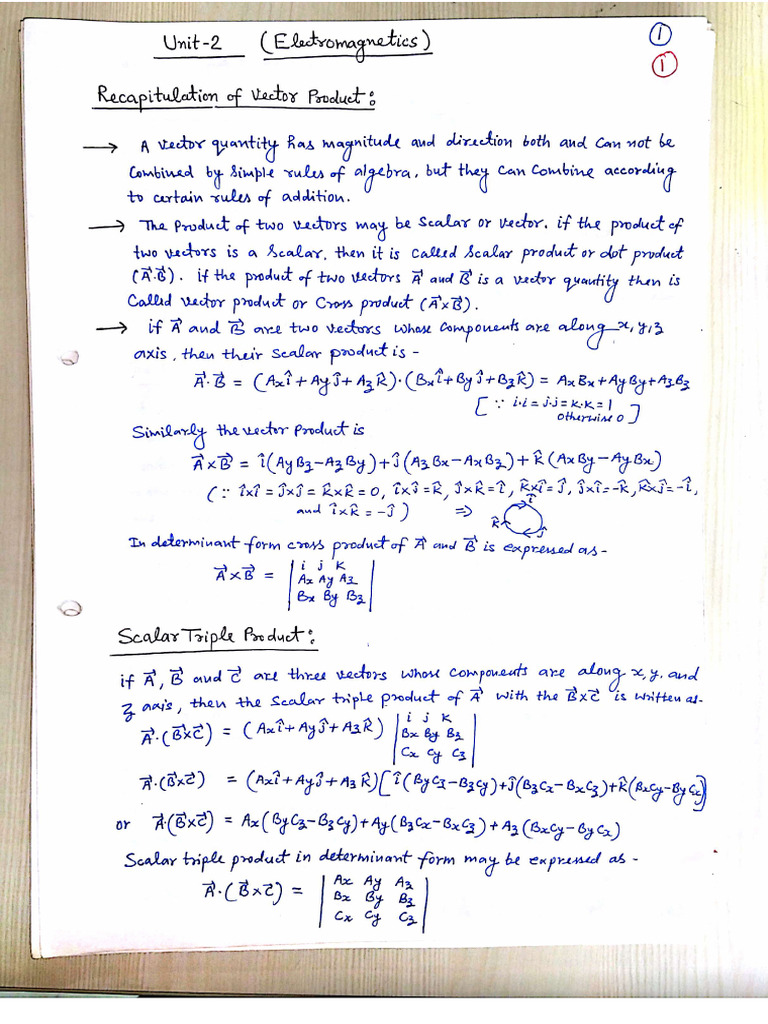 Unit-2 (Electromagnetics)
1
1
Recapitulation of Vector Product:
→ A vector quantity has magnitude and direction both and can not be
combined by simple rules of algebra, but they can combine according
to certain rules of addition.
→ The product of two vectors may be scalar or vector. if the product of
two vectors is a scalar, then it is called scalar product or dot product
(A⃗·B⃗). if the product of two vectors A⃗ and B⃗ is a vector quantity then is
called vector product or cross product (A⃗×B⃗).
→ if A⃗ and B⃗ are two vectors whose components are along x, y, z
axis, then their scalar product is -
A⃗·B⃗ = (Axî+Ayĵ+Azk̂)·(Bxî+Byĵ+Bzk̂) = AxBx+AyBy+AzBz
[∵ i·i = j·j = k·k = 1
otherwise 0]
Similarly the vector product is
A⃗×B⃗ = î(AyBz-AzBy)+ĵ(AzBx-AxBz)+k̂(AxBy-AyBx)
(∵ î×î = ĵ×ĵ = k̂×k̂ = 0, î×ĵ=k̂, ĵ×k̂=î, k̂×î=ĵ, ĵ×î=-k̂, k̂×ĵ=-î,
and î×k̂ = -ĵ) ⇒ î k̂ ĵ
In determinant form cross product of A⃗ and B⃗ is expressed as-
A⃗×B⃗ = | i j k
Ax Ay Az
Bx By Bz |
Scalar Triple Product:
if A⃗, B⃗ and C⃗ are three vectors whose components are along x, y, and
z axis, then the scalar triple product of A⃗ with the B⃗×C⃗ is written as-
A⃗·(B⃗×C⃗) = (Axî+Ayĵ+Azk̂) | i j k
Bx By Bz
Cx Cy Cz |
A⃗·(B⃗×C⃗) = (Axî+Ayĵ+Azk̂)[î(ByCz-BzCy)+ĵ(BzCx-BxCz)+k̂(BxCy-ByCx)]
or A⃗·(B⃗×C⃗) = Ax(ByCz-BzCy)+Ay(BzCx-BxCz)+Az(BxCy-ByCx)
Scalar triple product in determinant form may be expressed as -
A⃗·(B⃗×C⃗) = | Ax Ay Az
Bx By Bz
Cx Cy Cz |